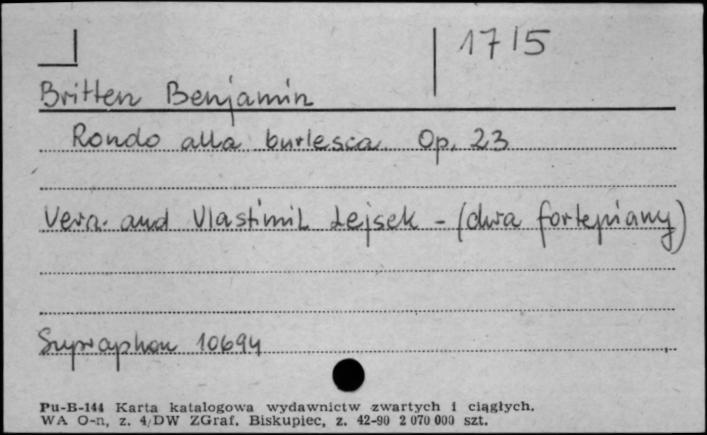 1715
Britten Benjamin
Rondo alla burlesca Op. 23
Vera and Vlastimil Lejsek - (dwa fortepiany)
Supraphon 10694
Pu-B-144 Karta katalogowa wydawnictw zwartych i ciągłych.
WA O-n, z. 4/DW ZGraf. Biskupiec, z. 42-90 2 070 000 szt.